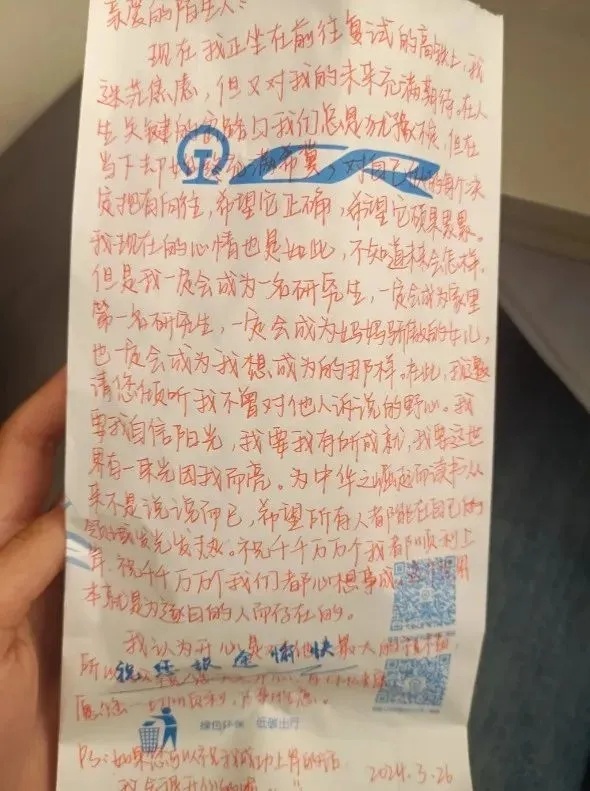 亲爱的陌生人:
现在我正坐在前往复试的高铁上,我
迷茫焦虑,但又对我的未来充满期待。在人
生关键的 我们总是犹豫不决,但在
当下却 充满希冀,对自己 的每个决
定抱有向往,希望它正确,希望它硕果累累。
我现在的心情也是如此,不知道 会怎样,
但是我一定会成为一名研究生,一定会成为家里
第一名研究生,一定会成为妈妈骄傲的女儿,
也一定会成为我想成为的那样。在此,我
请您倾听我不曾对他人诉说的野心。我
要我自信阳光,我要我有所成就,我要这世
界有一束光因我而亮。为中华之崛起而读书从
来不是说说而已,希望所有人都能在自己的
领域发光发热。祝千千万万个我都顺利上
岸,祝千千万万个我们都心想事成,
本就是为逐日的人而存在的。
我认为开心是 最大的
所以祝 旅途愉快
愿您一切 顺利,
绿色环保 低碳出行
Ps:如果您 以祝我成功上岸的话
我会很开心的
2024.3.26